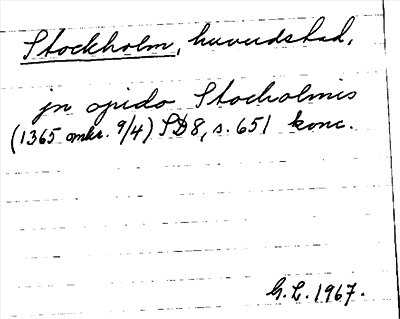 Stockholm, huvudstad,
jn opido Stocholmis
(1365 omkr. 9/4) SD8, s. 651 konc.
G.L. 1967.